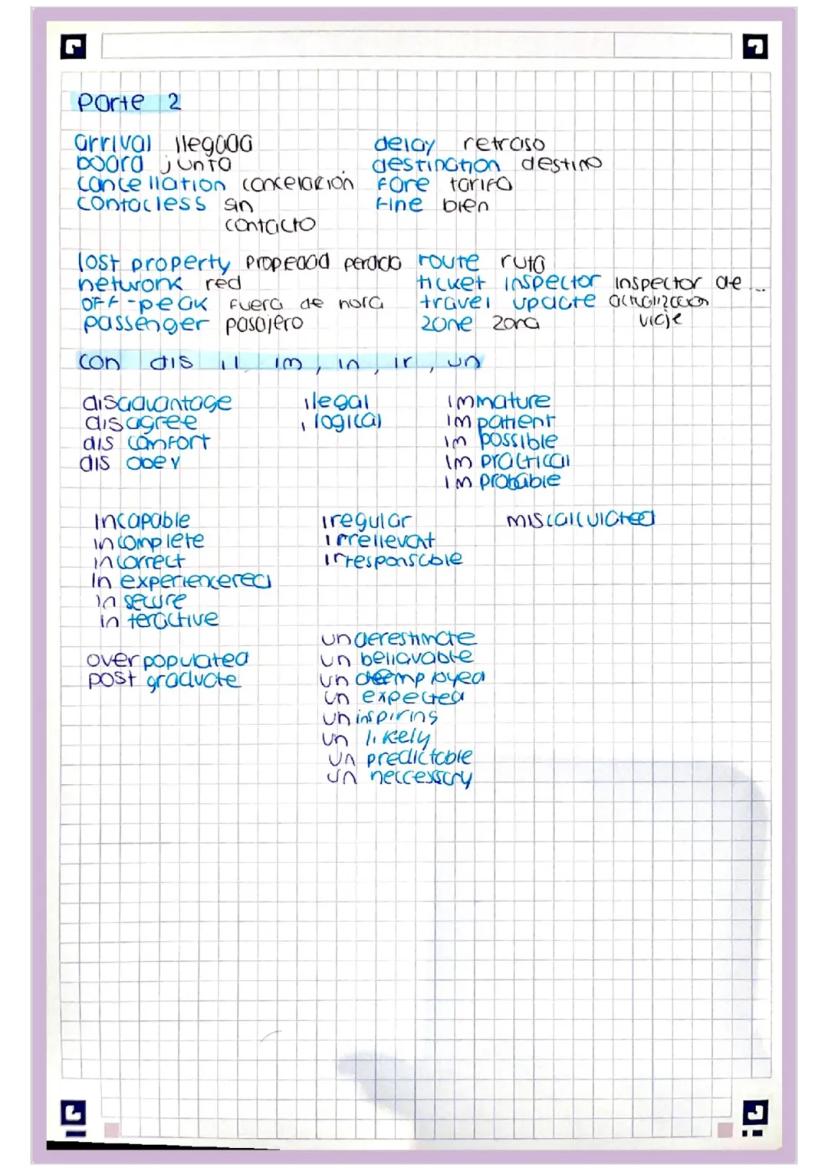 Parte 2
arrival llegada
board junta
cancellation cancelación
contacless sin
contacto
delay retraso
destination destino
fare tarifa
fine bien
lost property propedad perdida
network red
off-peak fuera de hora
passenger pasajero
route ruta
ticket inspector inspector de ...
travel update actualizacion
viaje
zone zona
con dis il im, in, ir, un
disadvantage
disagree
dis comfort
dis obey
ilegal
ilogical
immature
im patient
im possible
im practical
im probable
incapable
in complete
incorrect
in experiencered
in secure
in teractive
iregular
irrellevant
irresponsable
miscalculated
overpopulated
post graduate
underestimate
un beliavable
un employed
un expected
un inspiring
un likely
un predictable
un neccessary